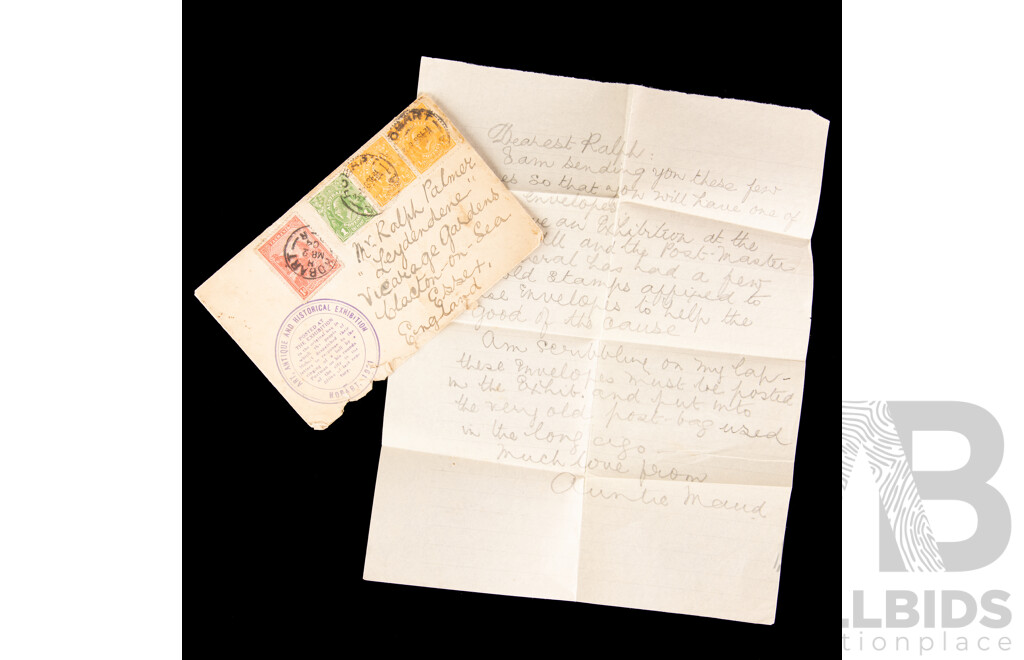 Mr. Ralph Palmer
"Leydendene"
Vicarage Gardens
Clacton-on-Sea
Essex,
England
HOBART
ART, ANTIQUE AND HISTORICAL EXHIBITION
POSTED AT
THE EXHIBITION
HOBART
Dearest Ralph:
I am sending you these few
so that you will have one of
Envelopes
an Exhibition at the
and the Post-Master
has had a few
old Stamps affixed to
Envelopes to help the
good of this cause
Am scribbling on my lap-
these Envelopes must be posted
in the Exhib. and put into
the very old post-bag used
in the long ago.
Much love from
Auntie Maud
LLBIDS
tionplace